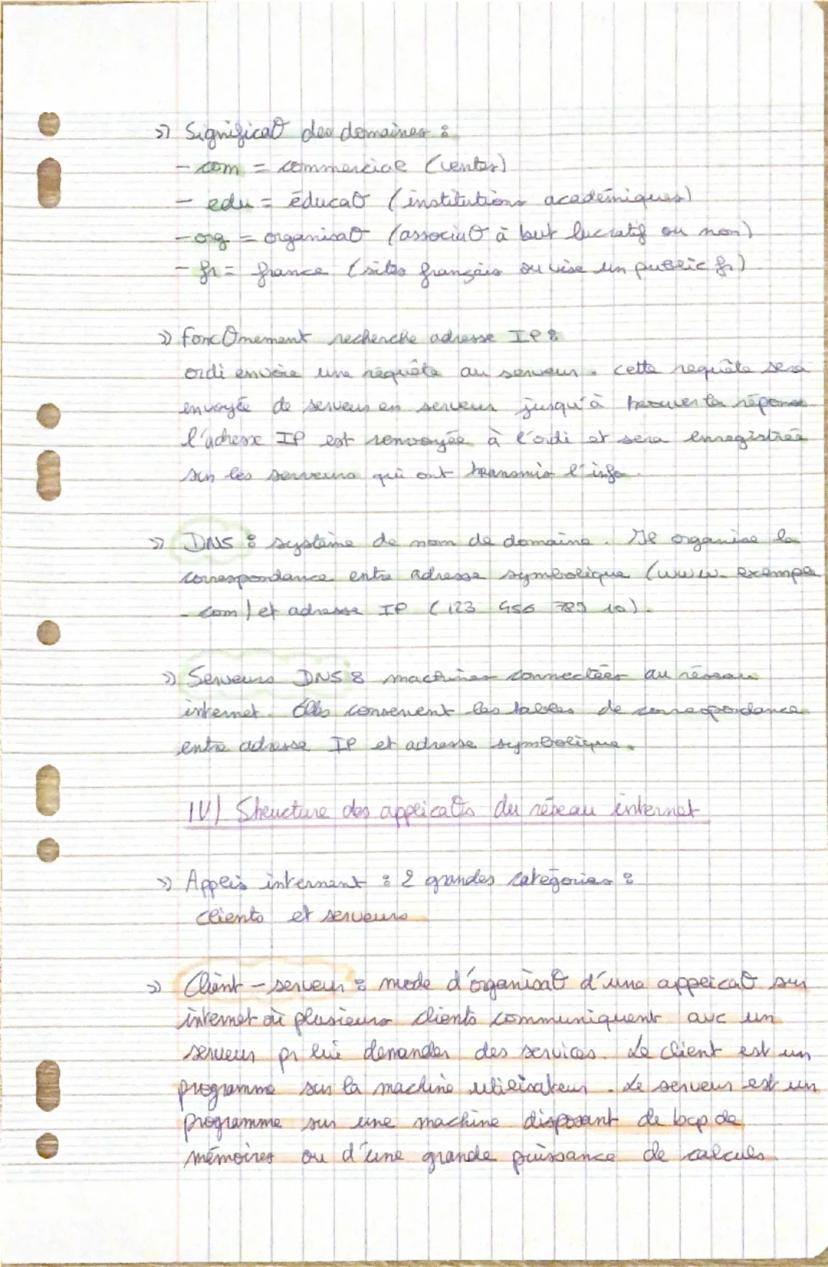 ») Significat° des domaines :
- com = commerciale (ventes)
- edu = éducat° (institutions académiques)
- org = organisat° (associat° à but lucratif ou non)
- fr = france (sites français ou vise un public fr)
») fonct°nement recherche adresse IP :
ordi envoie une requête au serveur. cette requête sera
envoyée de serveur en serveur jusqu'à trouver la réponse
l'adresse IP est renvoyée à l'ordi et sera enregistrée
sur les serveurs qui ont transmis l'info.
») DNS : système de nom de domaine. Il organise la
correspondance entre adresse symbolique (www. exemple
. com) et adresse IP (123 456 789 10).
») Serveurs DNS : machines connectées au réseau
internet. Elles conservent les tables de correspondance
entre adresse IP et adresse symbolique.
IV) Structure des applicat°s du réseau internet
») Applis internent : 2 grandes catégories :
clients et serveurs
») Client - serveur : mode d'organisat° d'une applicat° sur
internet où plusieurs clients communiquent avc un
serveur pr lui demander des services. Le client est un
programme sur la machine utilisateur. Le serveur est un
programme sur une machine disposant de bcp de
mémoires ou d'une grande puissance de calculs